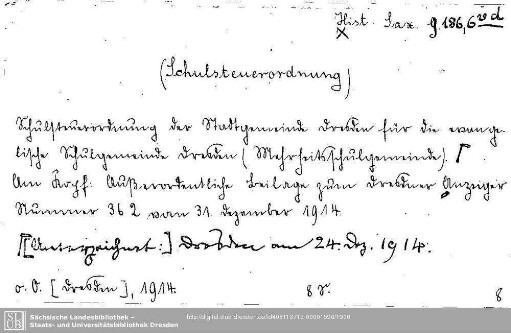 Hist. Sax. g 186, 6 vd
x
(Schulsteuerordnung)
Schulsteuerordnung der Stadtgemeinde Dresden für die evange-
lische Schulgemeinde Dresden (Mehrheitsschulgemeinde). [
Am Kopf: Außerordentliche Beilage zum Dresdner Anzeiger
Nummer 362 vom 31. Dezember 1914
[Unterzeichnet:] Dresden am 24. Dez. 1914.
o. O. [Dresden], 1914 8 S.
8
Sächsische Landesbibliothek –
Staats- und Universitätsbibliothek Dresden